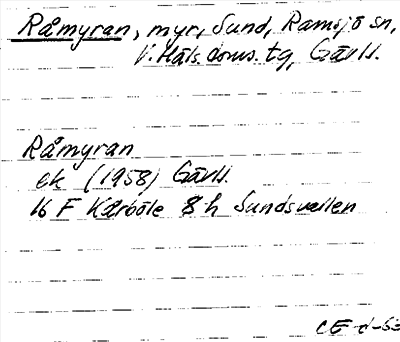 Råmyran, myr, Sund, Ramsjö sn,
V. Häls. doms. tg, Gävll.
Råmyran
ek (1958) Gävll.
16 F Kårböle 8 h Sundsvallen